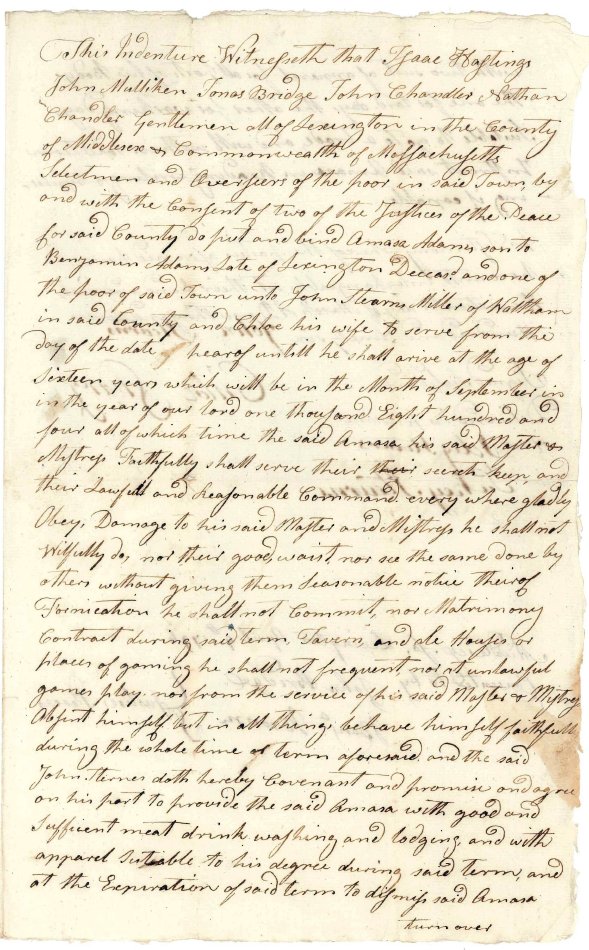 This Indenture Witnesseth that Isaac Hastings
John Mulliken Jonas Bridge John Chandler Nathan
Chandler Gentlemen all of Lexington in the County
of Middlesex & Commonwealth of Massachusetts
Selectmen and Overseers of the poor in said Town, by
and with the Consent of two of the Justices of the Peace
for said County do put and bind Amasa Adams son to
Benjamin Adams Late of Lexington Deceasd. and one of
the poor of said Town unto John Stearns Miller of Waltham
in said County and Chloe his wife to serve from the
day of the date of hearof untill he shall arive at the age of
Sixteen years which will be in the Month of September in
in the year of our lord one thousand Eight hundred and
four all of which time the said Amasa his said Master &
Mistress Faithfully shall serve their their secrets keep, and
their Lawfull and Reasonable Command every where gladly
Obey, Damage to his said Master and Mistress he shall not
Wilfully do, nor their good, waist, nor see the same done by
others without giving them Seasonable notice their of
Fornication he shall not Commit, nor Matrimony
Contract during said term, Tavern, and ale Houses or
places of gaming he shall not frequent, nor at unlawful
games play. nor from the service of his said Master & Mistress
Absent himself but in all things behave himself faithfully
during the whole time or term aforesaid, and the said
John Sternes doth hereby Covenant and promise and agree
on his part to provide the said Amasa with good and
Sufficent meat drink washing and lodging, and with
apparel Suteable to his degree during said term, and
at the Expiration of said term to dismiss said Amasa
turn over